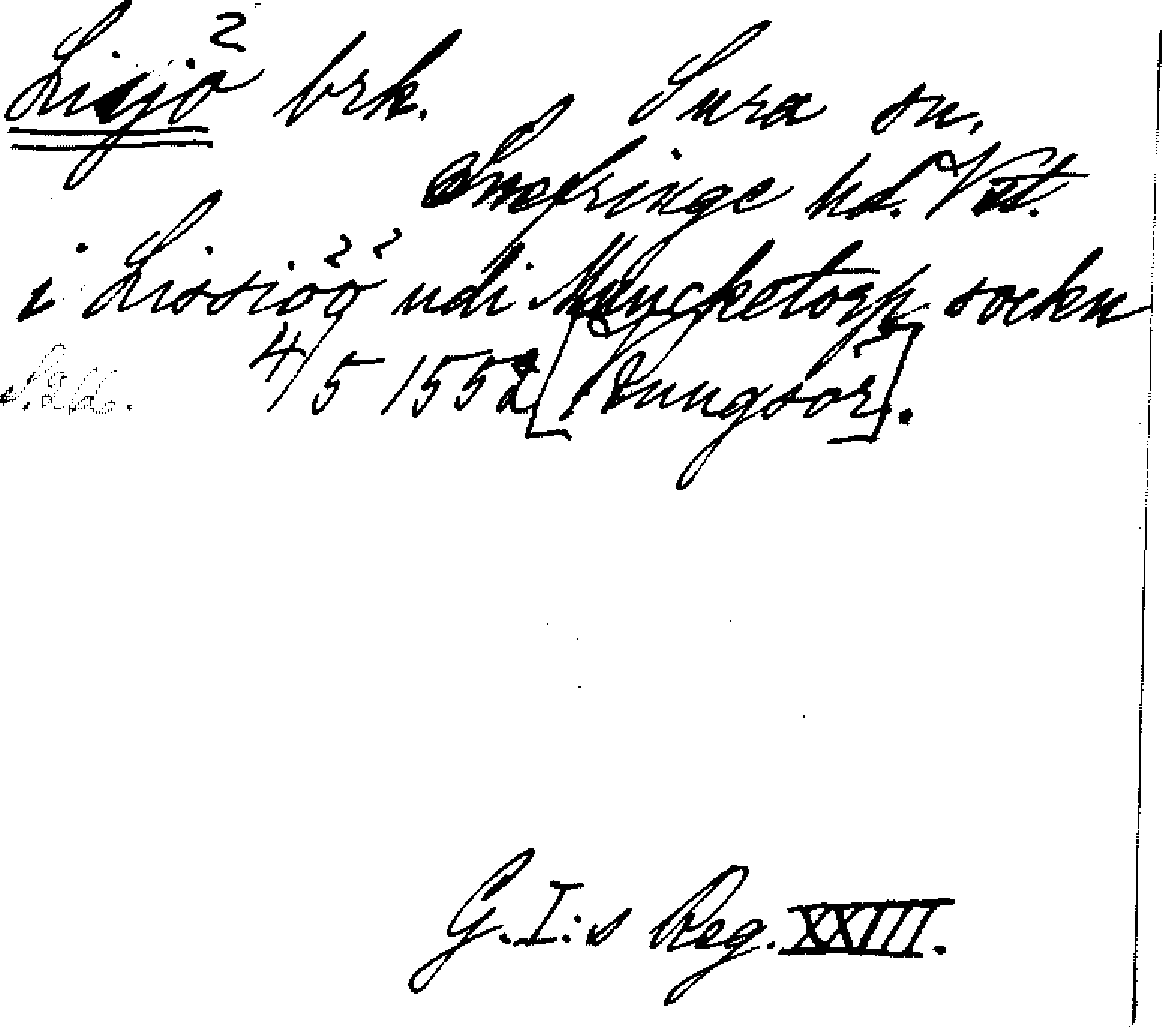 Lisjö brk. Sura sn.
Snefringe hd. Vstm.
i Lissiöö udi Muncketorp sockn
4/5 1552 [Kungsör].
G.I:s Reg. XXIII.